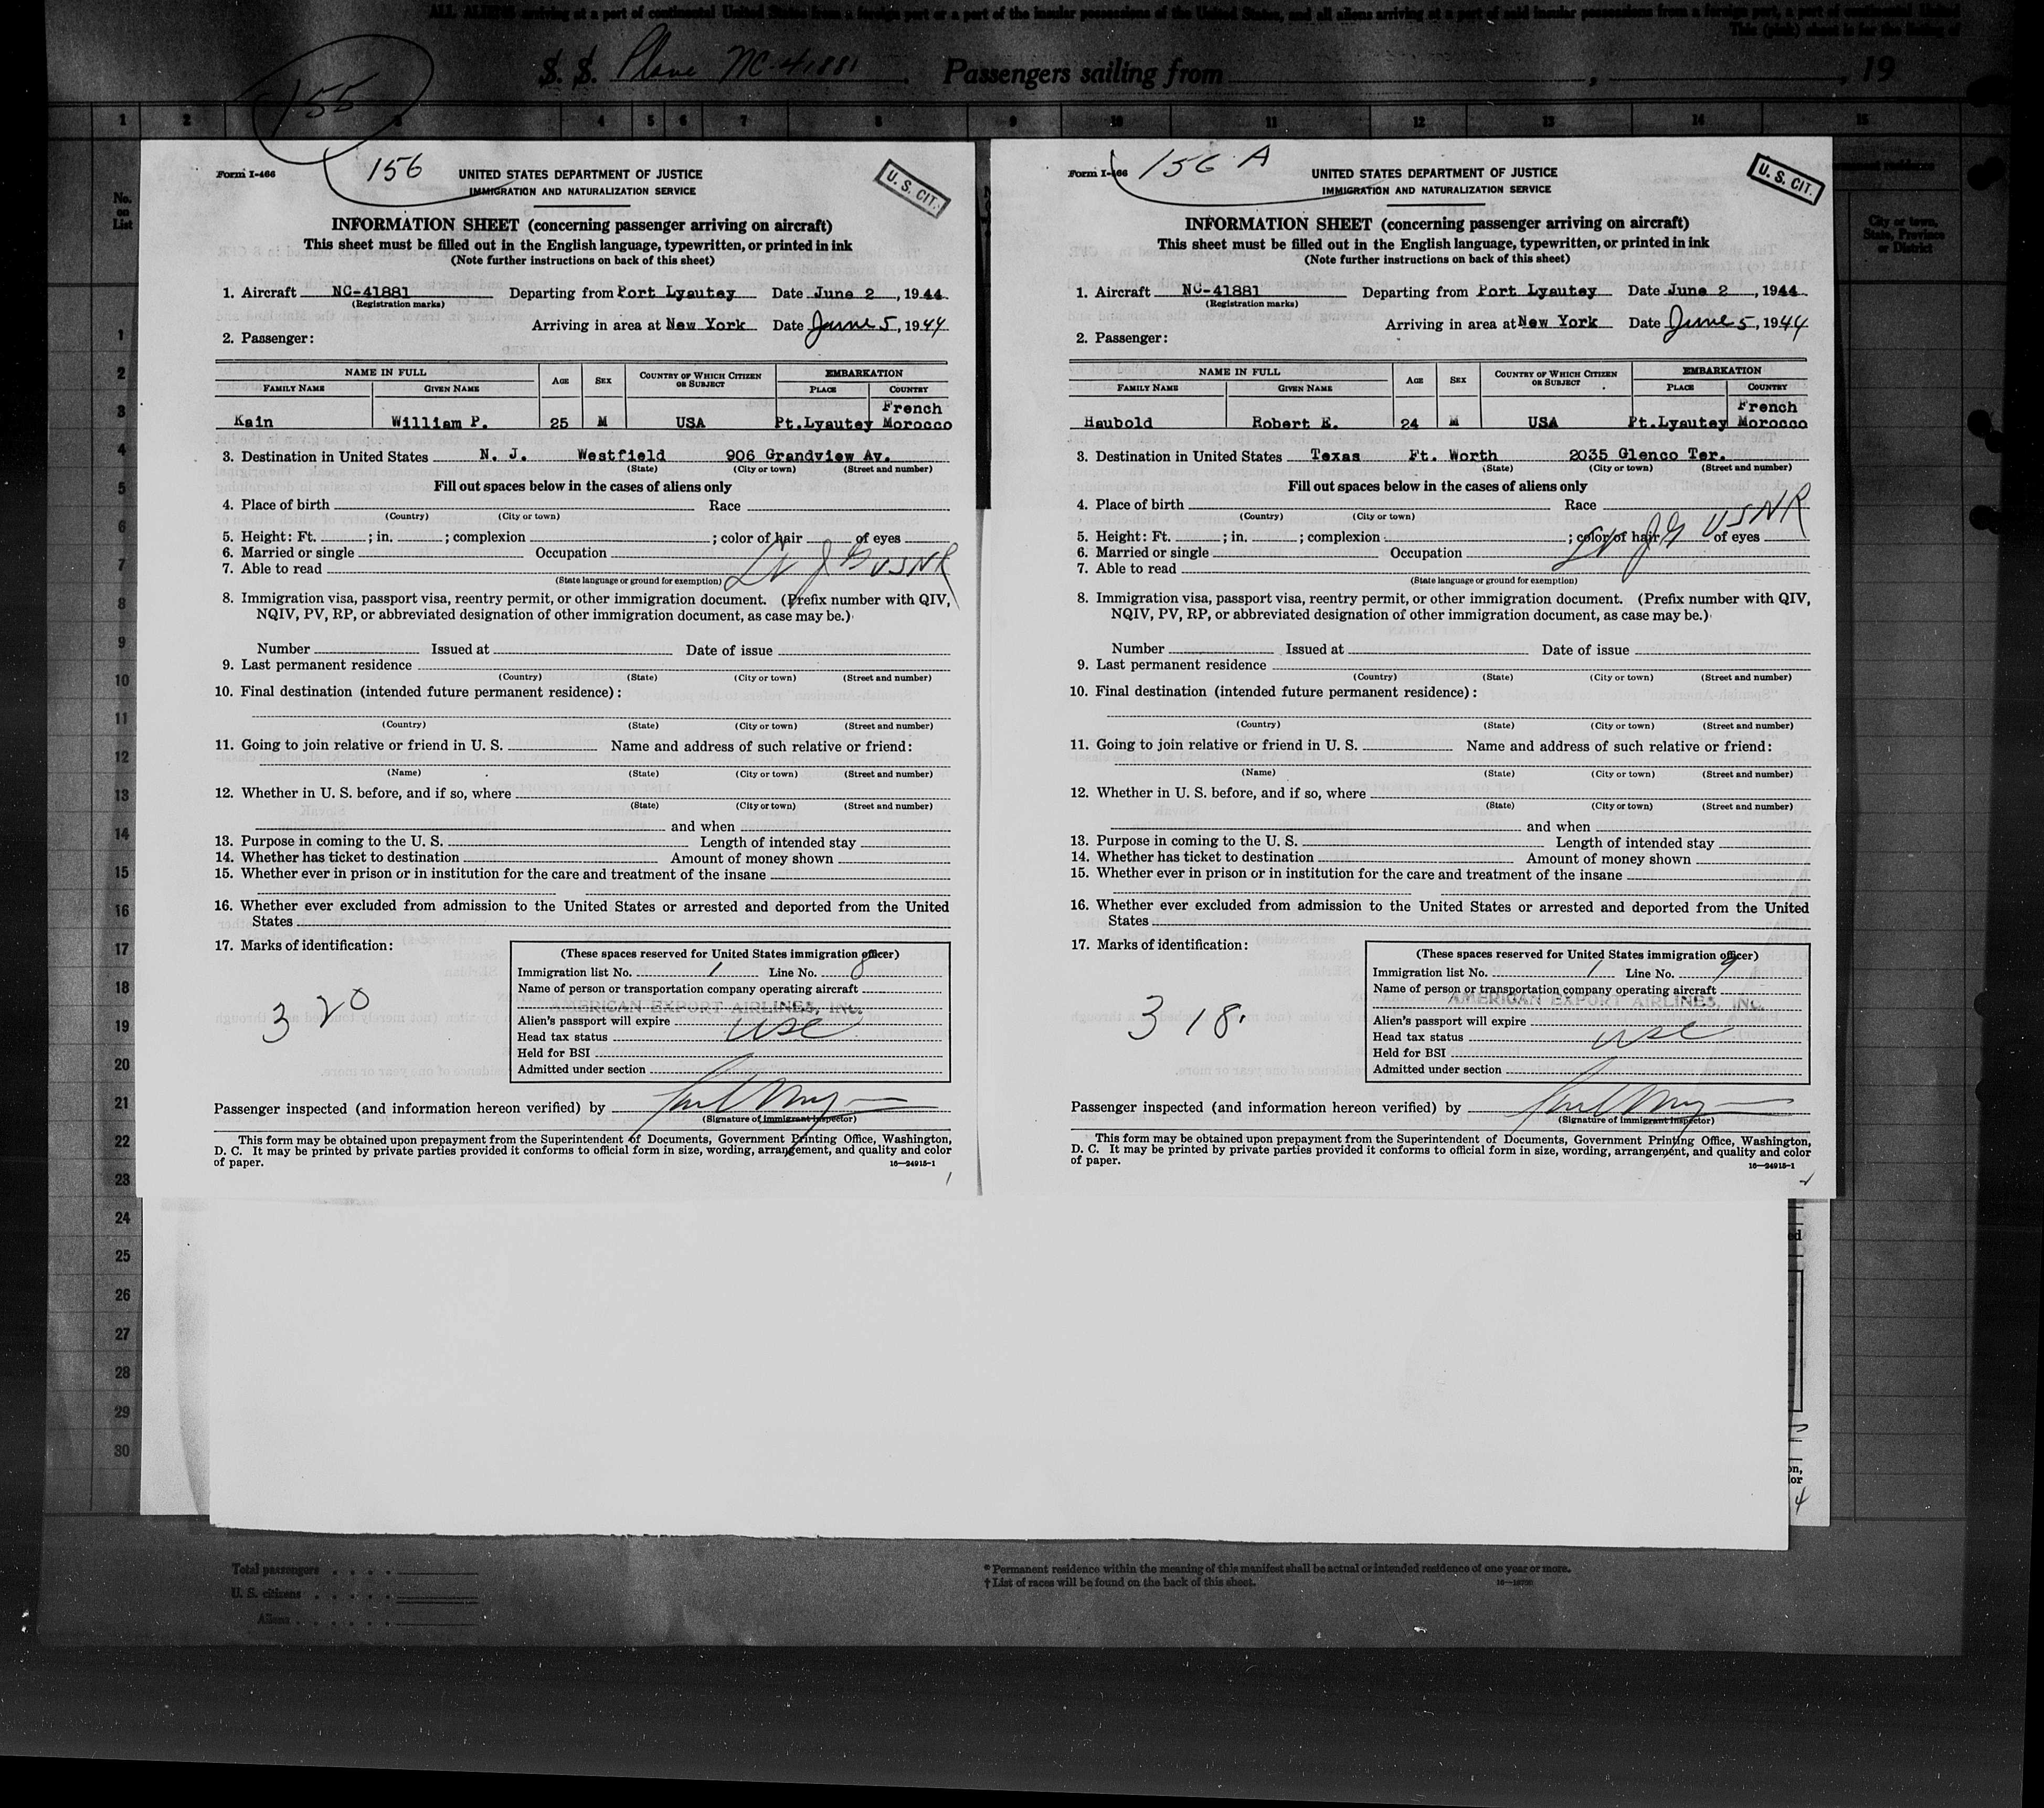 ALL ALIENS arriving at a port of continental United States from a foreign port or a port of the insular possessions of the United States, and all aliens arriving at a port of said insular possessions from a foreign port, a port of continental United
This (pink) sheet is for the listing of
S. S. Plane NC-41881 Passengers sailing from , 19
155
1 2 3 4 5 6 7 8 9 10 11 12 13 14 15
No. on List
City or town, State, Province or District
1
2
3
4
5
6
7
8
9
10
11
12
13
14
15
16
17
18
19
20
21
22
23
24
25
26
27
28
29
30
Form I-466
156
UNITED STATES DEPARTMENT OF JUSTICE
IMMIGRATION AND NATURALIZATION SERVICE
U. S. CIT.
INFORMATION SHEET (concerning passenger arriving on aircraft)
This sheet must be filled out in the English language, typewritten, or printed in ink
(Note further instructions on back of this sheet)
1. Aircraft NC-41881 Departing from Port Lyautey Date June 2, 1944
(Registration marks)
Arriving in area at New York Date June 5, 1944
2. Passenger:
NAME IN FULL AGE SEX COUNTRY OF WHICH CITIZEN OR SUBJECT EMBARKATION
FAMILY NAME GIVEN NAME PLACE COUNTRY
Kain William P. 25 M USA Pt.Lyautey French Morocco
3. Destination in United States N. J. Westfield 906 Grandview Av.
(State) (City or town) (Street and number)
Fill out spaces below in the cases of aliens only
4. Place of birth Race
(Country) (City or town)
5. Height: Ft. ; in. ; complexion ; color of hair of eyes
6. Married or single Occupation
7. Able to read Lt JG USNR
(State language or ground for exemption)
8. Immigration visa, passport visa, reentry permit, or other immigration document. (Prefix number with QIV,
NQIV, PV, RP, or abbreviated designation of other immigration document, as case may be.)
Number Issued at Date of issue
9. Last permanent residence
(Country) (State) (City or town) (Street and number)
10. Final destination (intended future permanent residence):
(Country) (State) (City or town) (Street and number)
11. Going to join relative or friend in U. S. Name and address of such relative or friend:
(Name) (State) (City or town) (Street and number)
12. Whether in U. S. before, and if so, where
(State) (City or town) (Street and number)
and when
13. Purpose in coming to the U. S. Length of intended stay
14. Whether has ticket to destination Amount of money shown
15. Whether ever in prison or in institution for the care and treatment of the insane
16. Whether ever excluded from admission to the United States or arrested and deported from the United
States
17. Marks of identification:
320
(These spaces reserved for United States immigration officer)
Immigration list No. 1 Line No. 8
Name of person or transportation company operating aircraft
AMERICAN EXPORT AIRLINES, INC.
Alien's passport will expire
Head tax status USC
Held for BSI
Admitted under section
Passenger inspected (and information hereon verified) by
(Signature of immigrant inspector)
This form may be obtained upon prepayment from the Superintendent of Documents, Government Printing Office, Washington,
D. C. It may be printed by private parties provided it conforms to official form in size, wording, arrangement, and quality and color
of paper.
16—24915-1
Form I-466
156 A
UNITED STATES DEPARTMENT OF JUSTICE
IMMIGRATION AND NATURALIZATION SERVICE
U. S. CIT.
INFORMATION SHEET (concerning passenger arriving on aircraft)
This sheet must be filled out in the English language, typewritten, or printed in ink
(Note further instructions on back of this sheet)
1. Aircraft NC-41881 Departing from Port Lyautey Date June 2, 1944
(Registration marks)
Arriving in area at New York Date June 5, 1944
2. Passenger:
NAME IN FULL AGE SEX COUNTRY OF WHICH CITIZEN OR SUBJECT EMBARKATION
FAMILY NAME GIVEN NAME PLACE COUNTRY
Haubold Robert E. 24 M USA Pt.Lyautey French Morocco
3. Destination in United States Texas Ft. Worth 2035 Glenco Ter.
(State) (City or town) (Street and number)
Fill out spaces below in the cases of aliens only
4. Place of birth Race
(Country) (City or town)
Lt JG USNR
5. Height: Ft. ; in. ; complexion ; color of hair of eyes
6. Married or single Occupation
7. Able to read
(State language or ground for exemption)
8. Immigration visa, passport visa, reentry permit, or other immigration document. (Prefix number with QIV,
NQIV, PV, RP, or abbreviated designation of other immigration document, as case may be.)
Number Issued at Date of issue
9. Last permanent residence
(Country) (State) (City or town) (Street and number)
10. Final destination (intended future permanent residence):
(Country) (State) (City or town) (Street and number)
11. Going to join relative or friend in U. S. Name and address of such relative or friend:
(Name) (State) (City or town) (Street and number)
12. Whether in U. S. before, and if so, where
(State) (City or town) (Street and number)
and when
13. Purpose in coming to the U. S. Length of intended stay
14. Whether has ticket to destination Amount of money shown
15. Whether ever in prison or in institution for the care and treatment of the insane
16. Whether ever excluded from admission to the United States or arrested and deported from the United
States
17. Marks of identification:
318
(These spaces reserved for United States immigration officer)
Immigration list No. 1 Line No. 9
Name of person or transportation company operating aircraft
AMERICAN EXPORT AIRLINES, INC.
Alien's passport will expire
Head tax status USC
Held for BSI
Admitted under section
Passenger inspected (and information hereon verified) by
(Signature of immigrant inspector)
This form may be obtained upon prepayment from the Superintendent of Documents, Government Printing Office, Washington,
D. C. It may be printed by private parties provided it conforms to official form in size, wording, arrangement, and quality and color
of paper.
16—24915-1
Total passengers
U. S. citizens
Aliens
* Permanent residence within the meaning of this manifest shall be actual or intended residence of one year or more.
† List of races will be found on the back of this sheet.